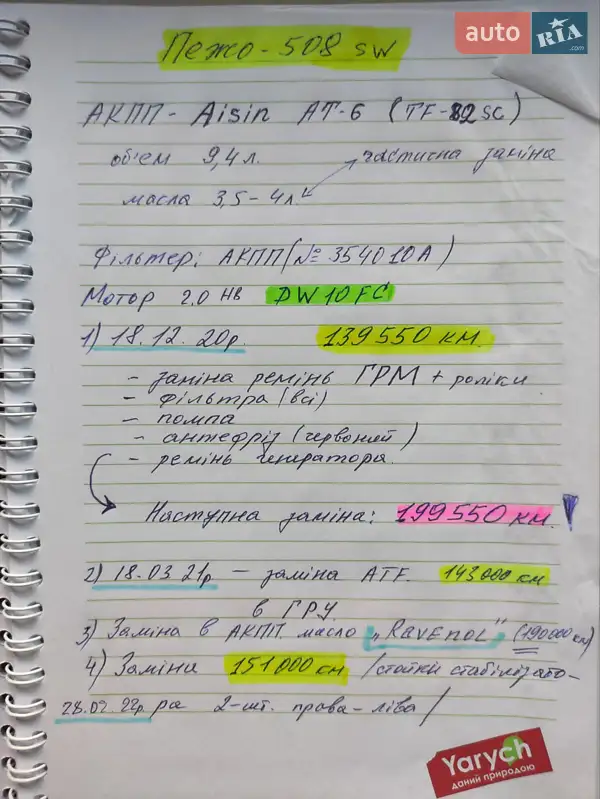 auto RIA .com
Пежо - 508 SW
АКПП - Aisin AT-6 (TF-82SC)
об'єм 9,4 л.
часткова заміна
масла 3,5 - 4 л.
Фільтер: АКПП (№ 354010А)
Мотор 2.0 НВ DW10FC
1) 18.12.20р. 139 550 км.
- заміна ремінь ГРМ + роліки
- фільтра (всі)
- помпа
- антефріз (червоний)
- ремінь генератора.
Наступна заміна: 199 550 км. !
2) 18.03.21р - заміна ATF. 143 000 км
в ГРУ.
3) Заміна в АКПП масло „Ravenol" (190 000 км)
4) Заміни 151 000 км /стойки стабілізато-
28.02.22р. ра 2-шт. права-ліва/
Yarych
даний природою